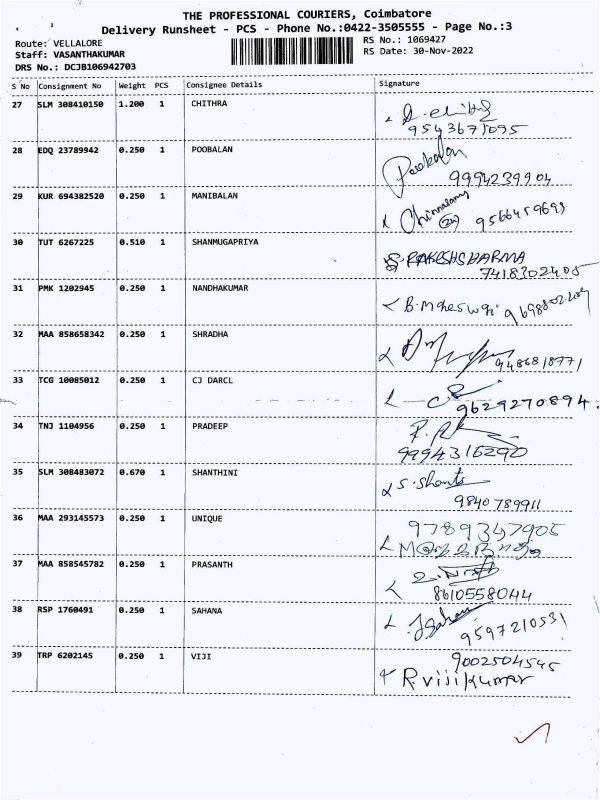 THE PROFESSIONAL COURIERS, Coimbatore
Delivery Runsheet - PCS - Phone No.:0422-3505555 - Page No.:3
Route: VELLALORE
RS No.: 1069427
Staff: VASANTHAKUMAR
RS Date: 30-Nov-2022
DRS No.: DCJB106942703
S No Consignment No Weight PCS Consignee Details Signature
27 SLM 308410150 1.200 1 CHITHRA
28 EDQ 23789942 0.250 1 POOBALAN
Poobalan
9994239904
29 KUR 694382520 0.250 1 MANIBALAN
30 TUT 6267225 0.510 1 SHANMUGAPRIYA
7418302405
31 PMK 1202945 0.250 1 NANDHAKUMAR
32 MAA 858658342 0.250 1 SHRADHA
9486818771
33 TCG 10085012 0.250 1 CJ DARCL
9629270894.
34 TNJ 1104956 0.250 1 PRADEEP
9994316290
35 SLM 308483072 0.670 1 SHANTHINI
9840789911
36 MAA 293145573 0.250 1 UNIQUE
9789347905
37 MAA 858545782 0.250 1 PRASANTH
8610558044
38 RSP 1760491 0.250 1 SAHANA
9597210531
39 TRP 6202145 0.250 1 VIJI
9002504545
R.vijikumar